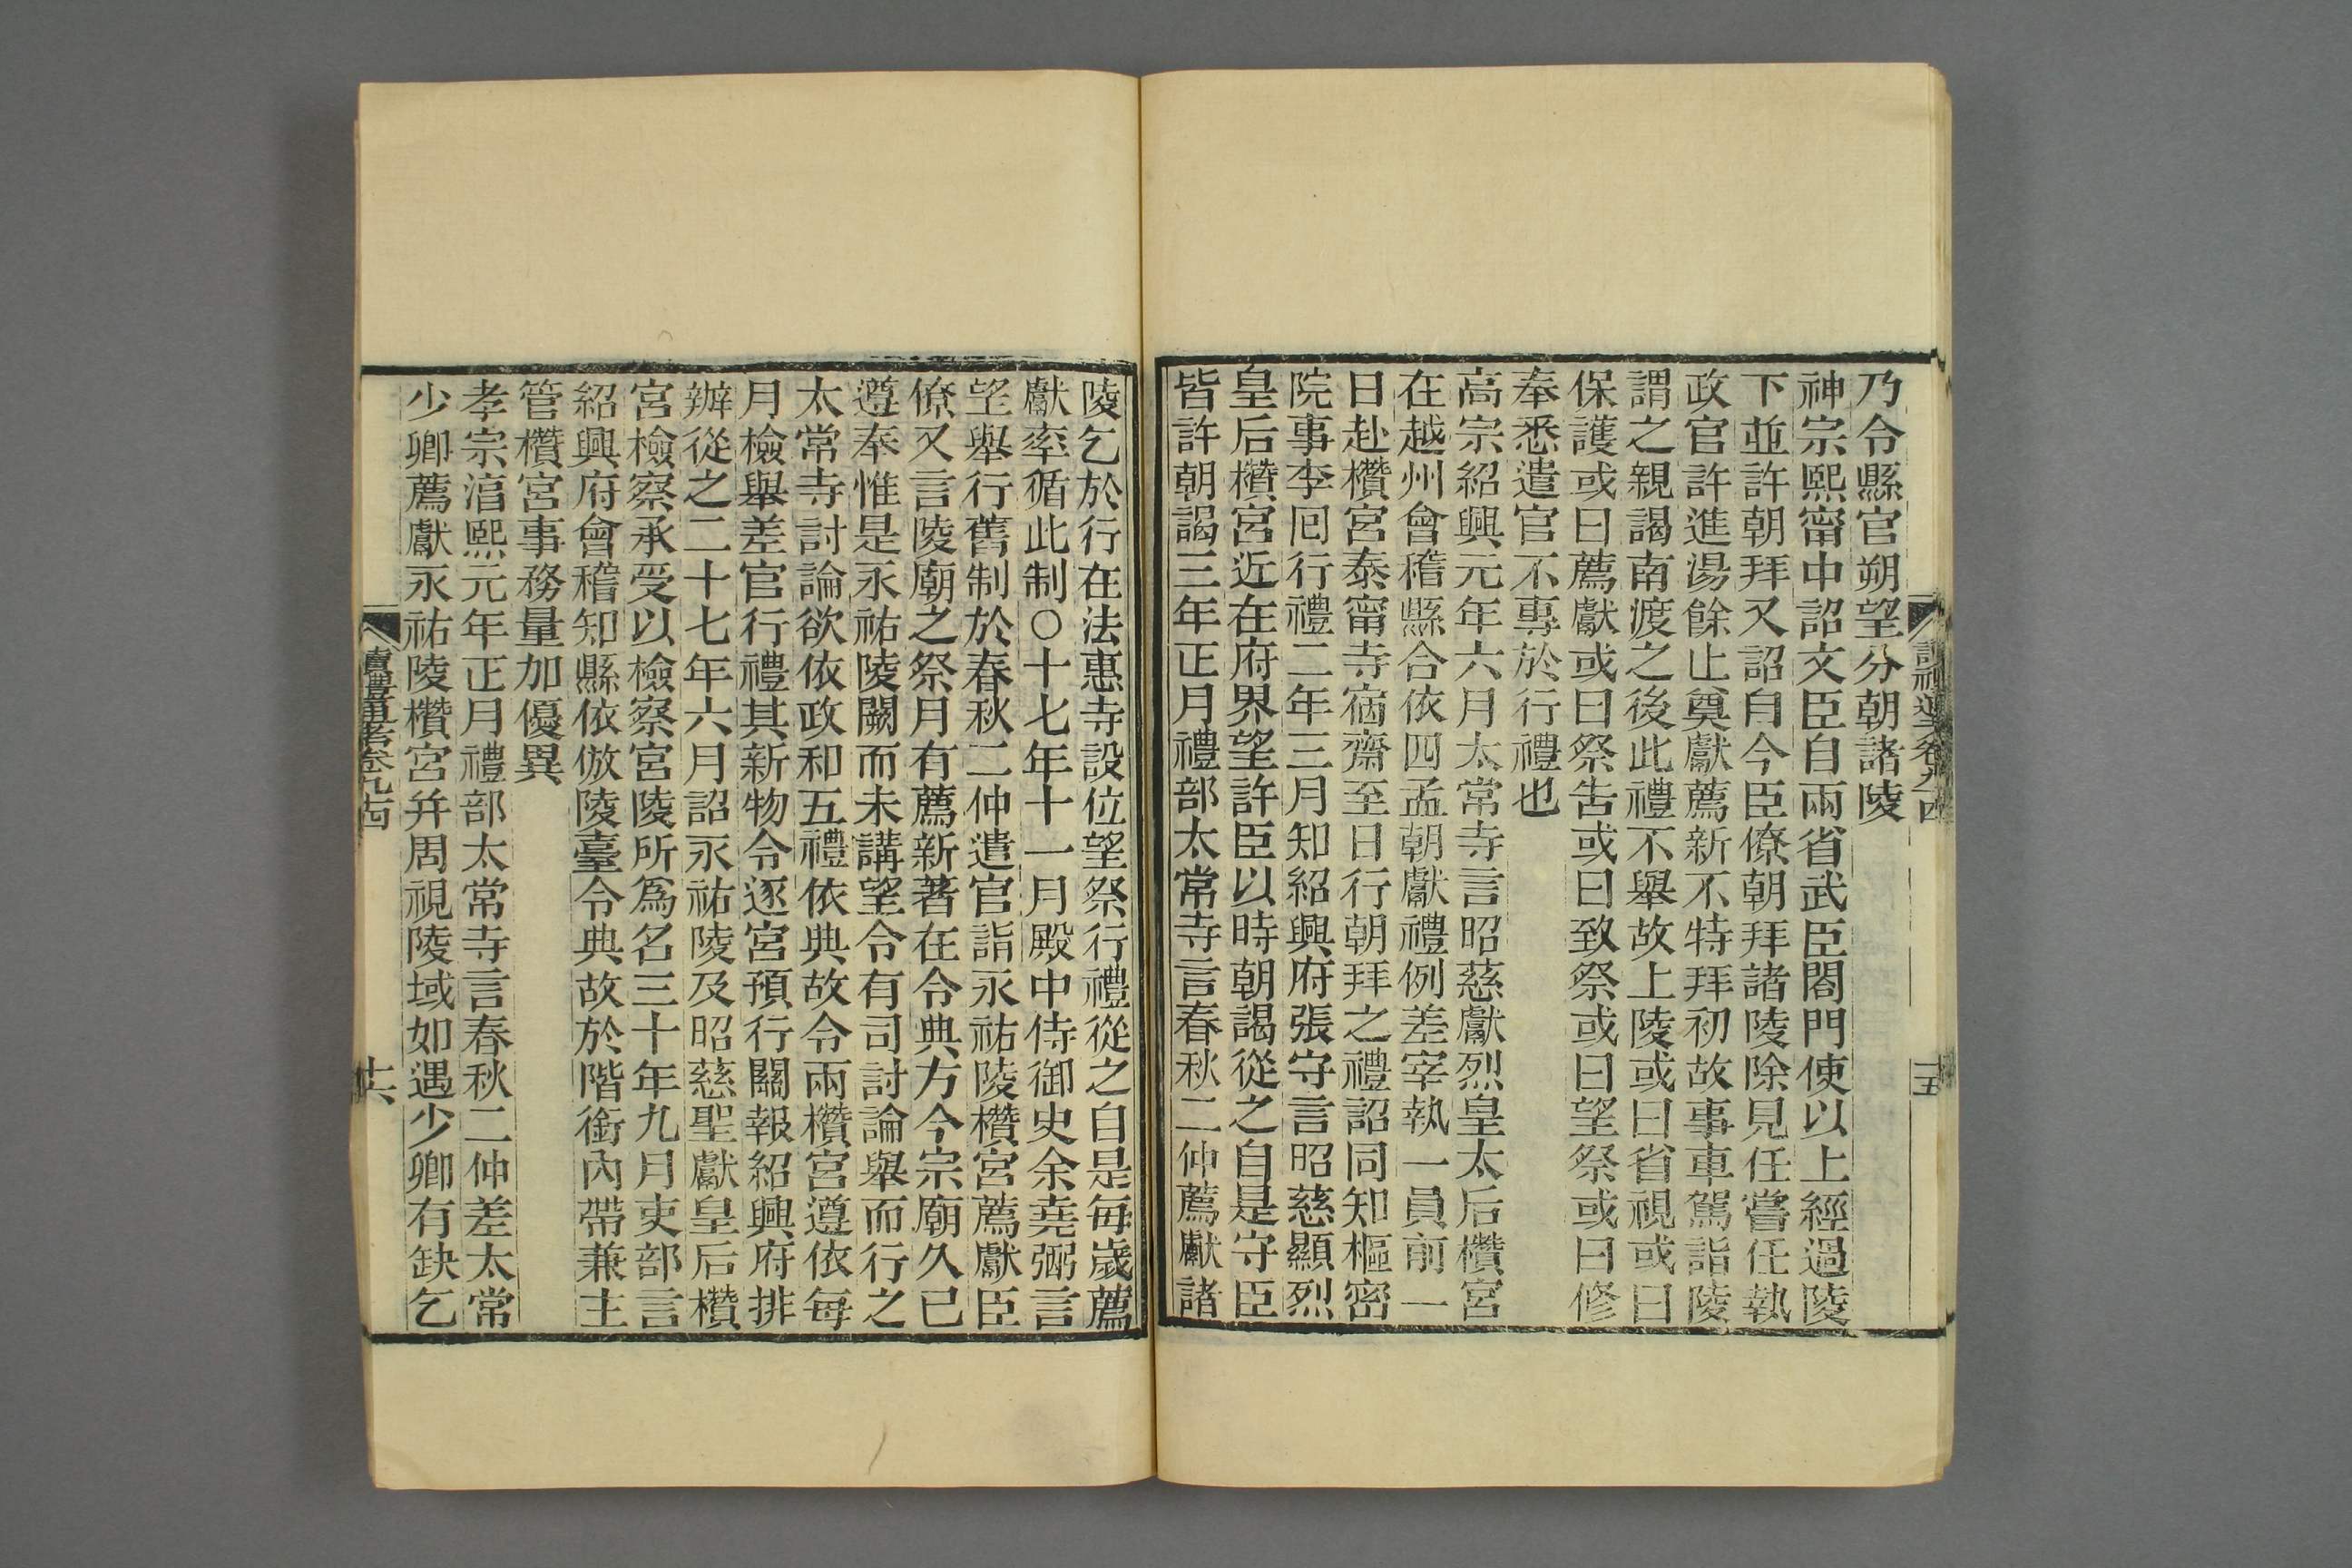 乃令縣官朔望分朝諸陵
神宗熙甯中詔文臣自兩省武臣閤門使以上經過陵
下並許朝拜又詔自今臣僚朝拜諸陵除見任嘗任執
政官許進湯餘止奠獻薦新不特拜初故事車駕詣陵
謂之親謁南渡之後此禮不舉故上陵或曰省視或曰
保護或曰薦獻或曰祭告或曰致祭或曰望祭或曰修
奉悉遣官不專於行禮也
高宗紹興元年六月太常寺言昭慈獻烈皇太后欑宮
在越州會稽縣合依四孟朝獻禮例差宰執一員前一
日赴欑宮泰甯寺宿齋至日行朝拜之禮詔同知樞密
院事李回行禮二年三月知紹興府張守言昭慈顯烈
皇后欑宮近在府界望許臣以時朝謁從之自是守臣
皆許朝謁三年正月禮部太常寺言春秋二仲薦獻諸
陵乞於行在法惠寺設位望祭行禮從之自是每歲薦
獻率循此制○十七年十一月殿中侍御史余堯弼言
望舉行舊制於春秋二仲遣官詣永祐陵欑宮薦獻臣
僚又言陵廟之祭月有薦新著在令典方今宗廟久已
遵奉惟是永祐陵闕而未講望令有司討論舉而行之
太常寺討論欲依政和五禮依典故令兩欑宮遵依每
月檢舉差官行禮其新物令逐宮預行關報紹興府排
辦從之二十七年六月詔永祐陵及昭慈聖獻皇后欑
宮檢察承受以檢察宮陵所爲名三十年九月吏部言
紹興府會稽知縣依倣陵臺令典故於階銜內帶兼主
管欑宮事務量加優異
孝宗淯熙元年正月禮部太常寺言春秋二仲差太常
少卿薦獻永祐陵欑宮并周視陵域如遇少卿有缺乞
讀禮通考卷九十四
十六